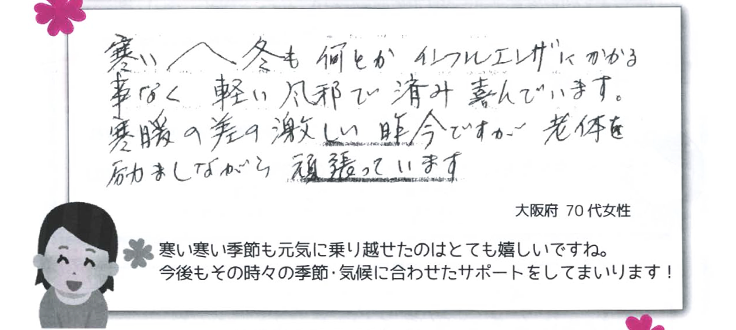 寒い〱冬も何とかインフルエンザにかかる
事なく軽い風邪で済み喜んでいます。
寒暖の差の激しい昨今ですが老体を
励ましながら頑張っています
大阪府 70代女性
寒い寒い季節も元気に乗り越せたのはとても嬉しいですね。
今後もその時々の季節・気候に合わせたサポートをしてまいります！